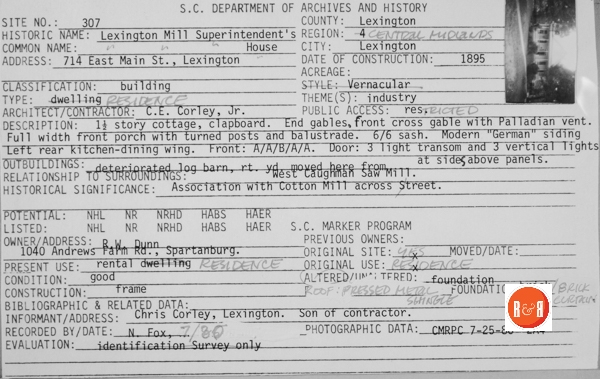 S.C. DEPARTMENT OF ARCHIVES AND HISTORY
SITE NO.: 307 COUNTY: Lexington
HISTORIC NAME: Lexington Mill Superintendent's REGION: 4 CENTRAL MIDLANDS
COMMON NAME: " " " House CITY: Lexington
ADDRESS: 714 East Main St., Lexington DATE OF CONSTRUCTION: 1895
ACREAGE:
CLASSIFICATION: building STYLE: Vernacular
TYPE: dwelling RESIDENCE THEME(S): industry
ARCHITECT/CONTRACTOR: C.E. Corley, Jr. PUBLIC ACCESS: res.RICTED
DESCRIPTION: 1½ story cottage, clapboard. End gables, front cross gable with Palladian vent.
Full width front porch with turned posts and balustrade. 6/6 sash. Modern "German" siding
Left rear kitchen-dining wing. Front: A/A/B/A/A. Door: 3 light transom and 3 vertical lights
at sides above panels.
OUTBUILDINGS: deteriorated log barn, rt. yd. moved here from
RELATIONSHIP TO SURROUNDINGS: West Caughman Saw Mill.
HISTORICAL SIGNIFICANCE: Association with Cotton Mill across Street.
POTENTIAL: NHL NR NRHD HABS HAER
LISTED: NHL NR NRHD HABS HAER S.C. MARKER PROGRAM
OWNER/ADDRESS: R.W. Dunn PREVIOUS OWNERS:
1040 Andrews Farm Rd., Spartanburg. ORIGINAL SITE: YES x MOVED/DATE:
PRESENT USE: rental dwelling RESIDENCE ORIGINAL USE: RESIDENCE x
CONDITION: good (ALTERED/UNALTERED: foundation
CONSTRUCTION: frame ROOF: PRESSED METAL SHINGLE FOUNDATION: BRICK
BIBLIOGRAPHIC & RELATED DATA:
INFORMANT/ADDRESS: Chris Corley, Lexington. Son of contractor.
RECORDED BY/DATE: N. Fox, 7/80 PHOTOGRAPHIC DATA: CMRPC 7-25-80
EVALUATION: identification Survey only
R&R